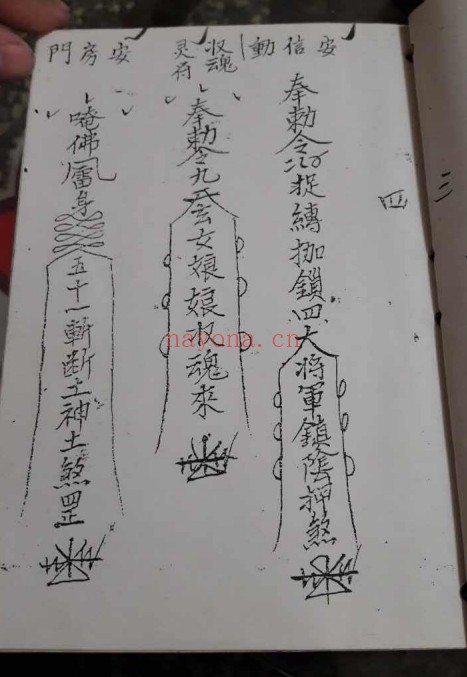 三
四
安信動
奉勅令捉縛枷鎖四大將軍鎮隂押煞
収魂
灵符
奉勅令九天玄女娘娘収魂來
安房門
唵佛身五十一斬断土神土煞罡
nayona.cn